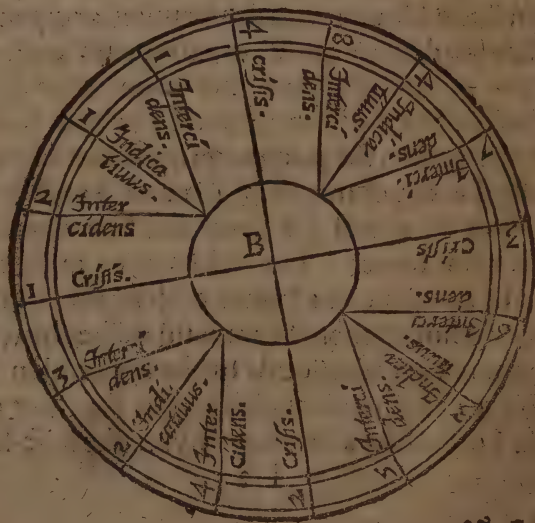 1
Criſis.
2
Inter
cidens
1
Indica
tiuus.
1
Interci
dens.
4
criſis.
8
Interci
dens.
4
Indica
tiuus.
7
Interci
dens.
3
Criſis
6
Interci
dens.
3
Indica
tiuus.
5
Interci
dens.
2
Criſis.
4
Inter
Cidens.
2
Indi
catiuus.
3
Interci
dens.
B